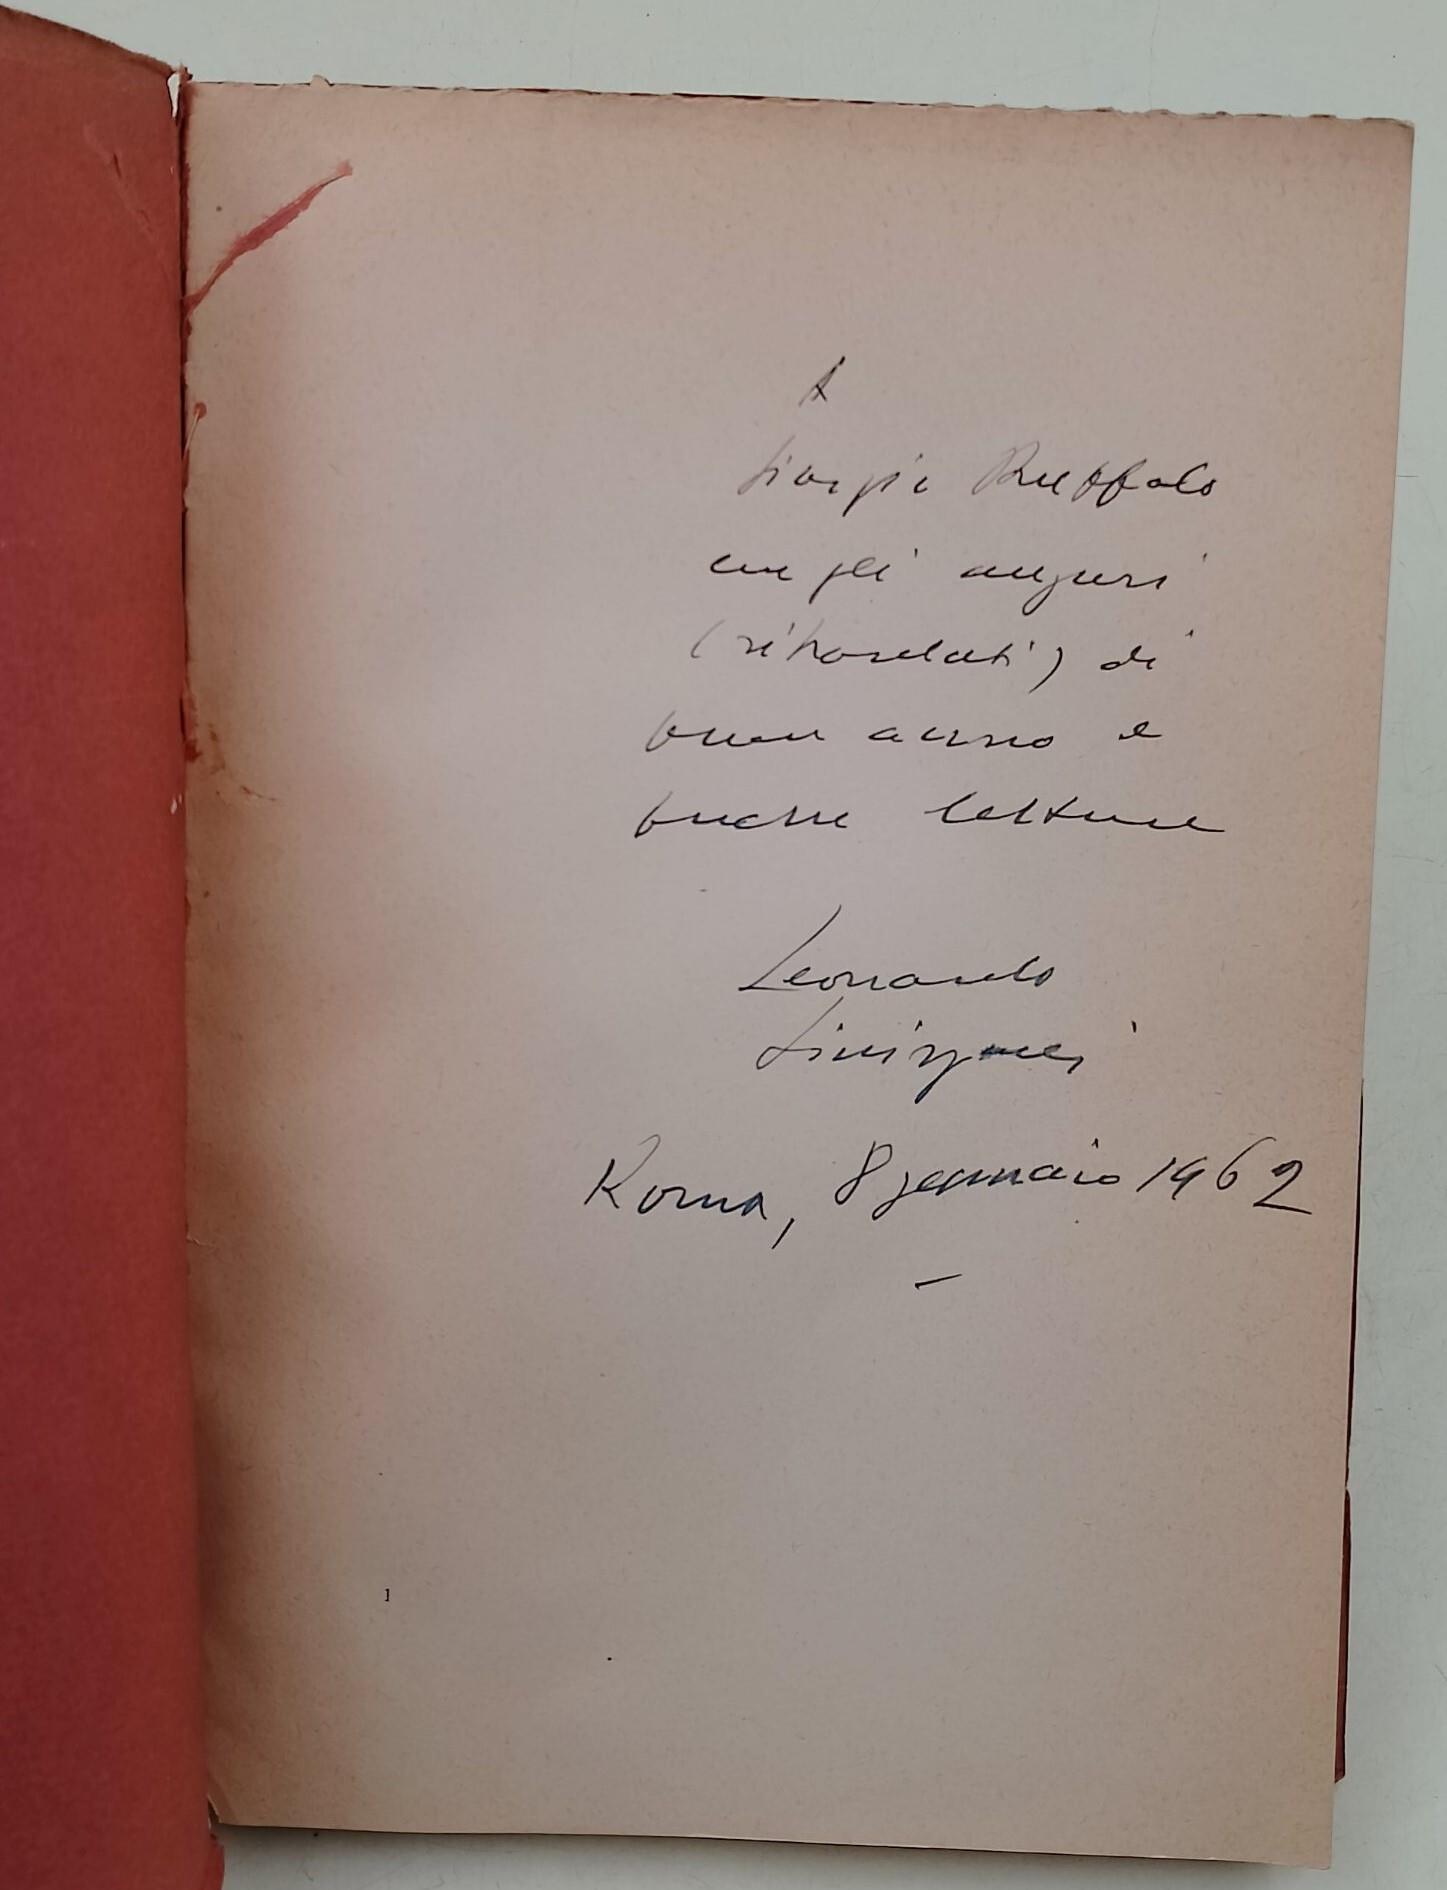 A
Giorgio Ruffolo
con gli auguri
(ritardati) di
buon anno e
buone letture
Leonardo
Sinisgalli
Roma, 8 gennaio 1962
1